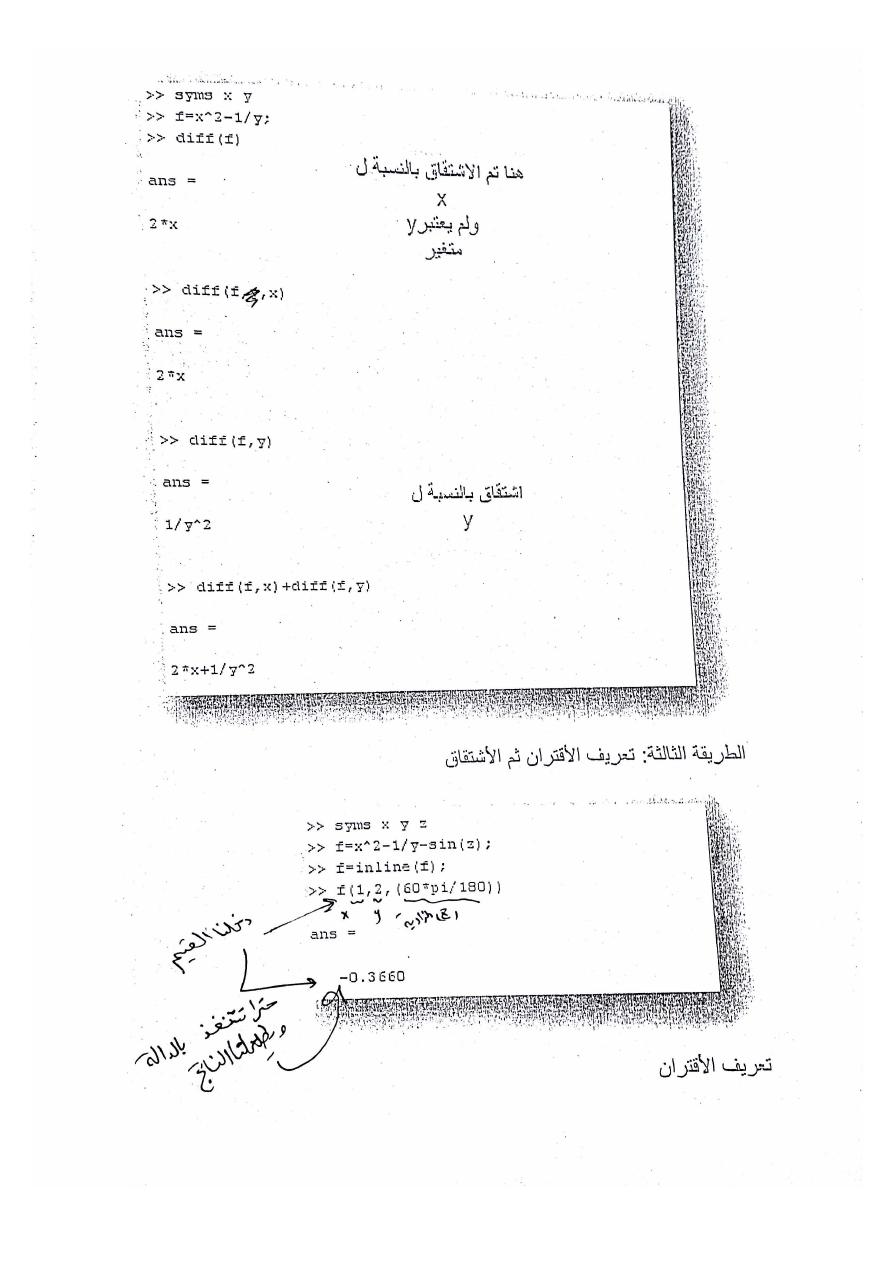 >> syms x y
>> f=x^2-1/y;
>> diff(f)
هنا تم الاشتقاق بالنسبة ل
x
ولم يعتبر y
متغير
ans =
2*x
>> diff(f, ,x)
ans =
2*x
>> diff(f,y)
ans =
1/y^2
اشتقاق بالنسبة ل
y
>> diff(f,x)+diff(f,y)
ans =
2*x+1/y^2
الطريقة الثالثة: تعريف الأقتران ثم الأشتقاق
>> syms x y z
>> f=x^2-1/y-sin(z);
>> f=inline(f);
>> f(1,2,(60*pi/180))
x y
ans =
دخلنا القيم
-0.3660
حتا تتنفذ بالدالة
الناتج
تعريف الأقتران